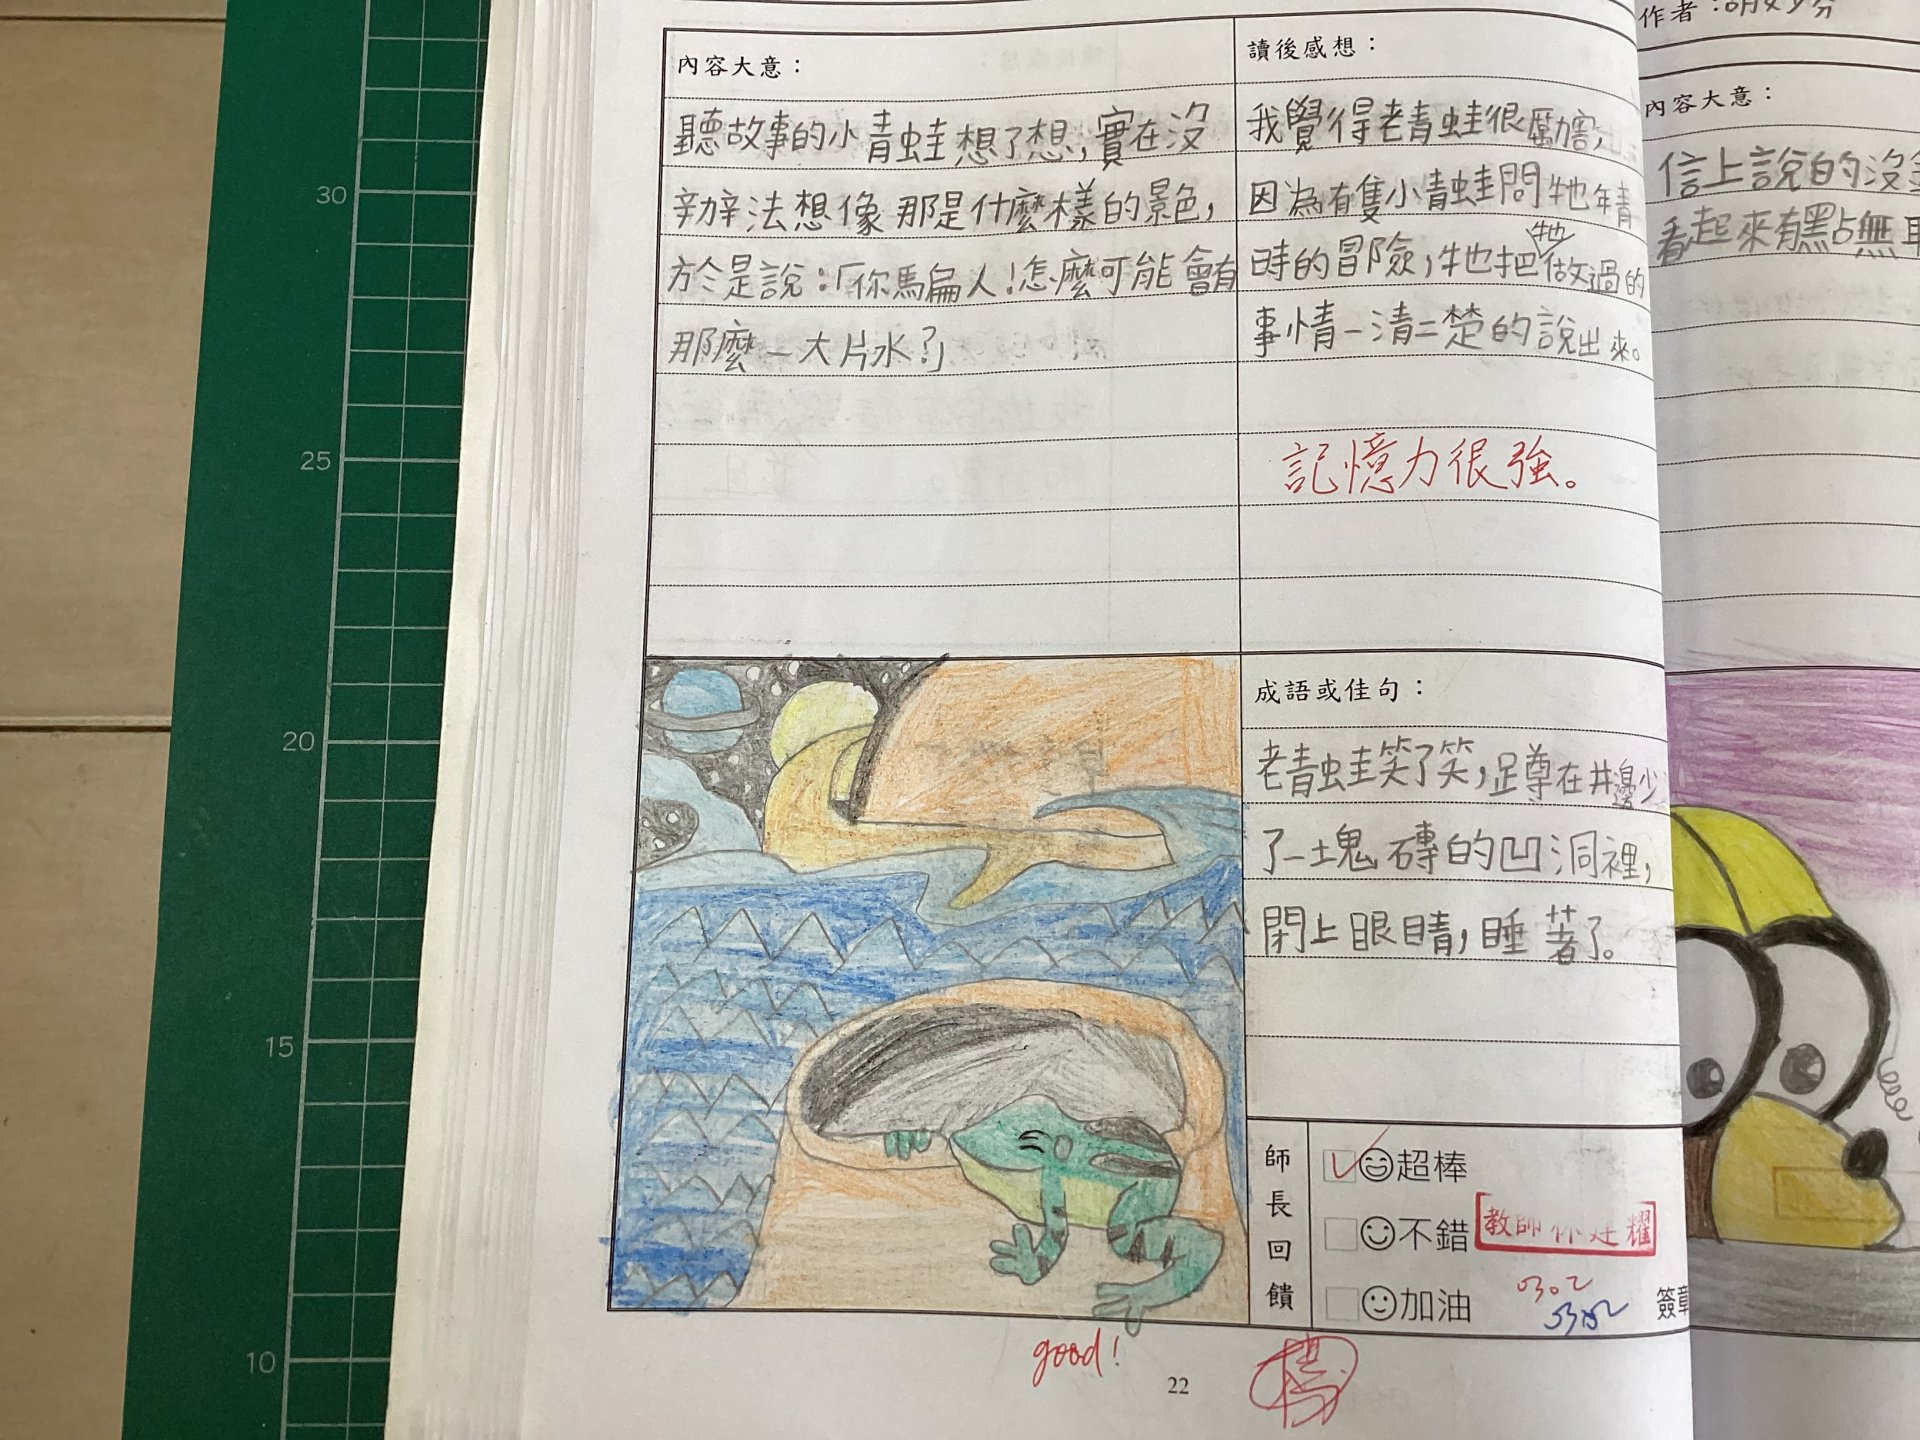 內容大意：
聽故事的小青蛙想了想，實在沒
辦法想像那是什麼樣的景色，
於是說：「你騙人！怎麼可能會有
那麼一大片水？」
讀後感想：
我覺得老青蛙很厲害，
因為有隻小青蛙問牠年青
時的冒險，牠把牠做過的
事情一清二楚的說出來。
記憶力很強。
成語或佳句：
老青蛙笑了笑，蹲在井邊少
了一塊磚的凹洞裡，
閉上眼睛，睡著了。
師長回饋
超棒
不錯
加油
教師
耀
0302
簽章
good!
22
楊
作者：
內容大意：
信上說的沒
看起來有點無
30
25
20
15
10